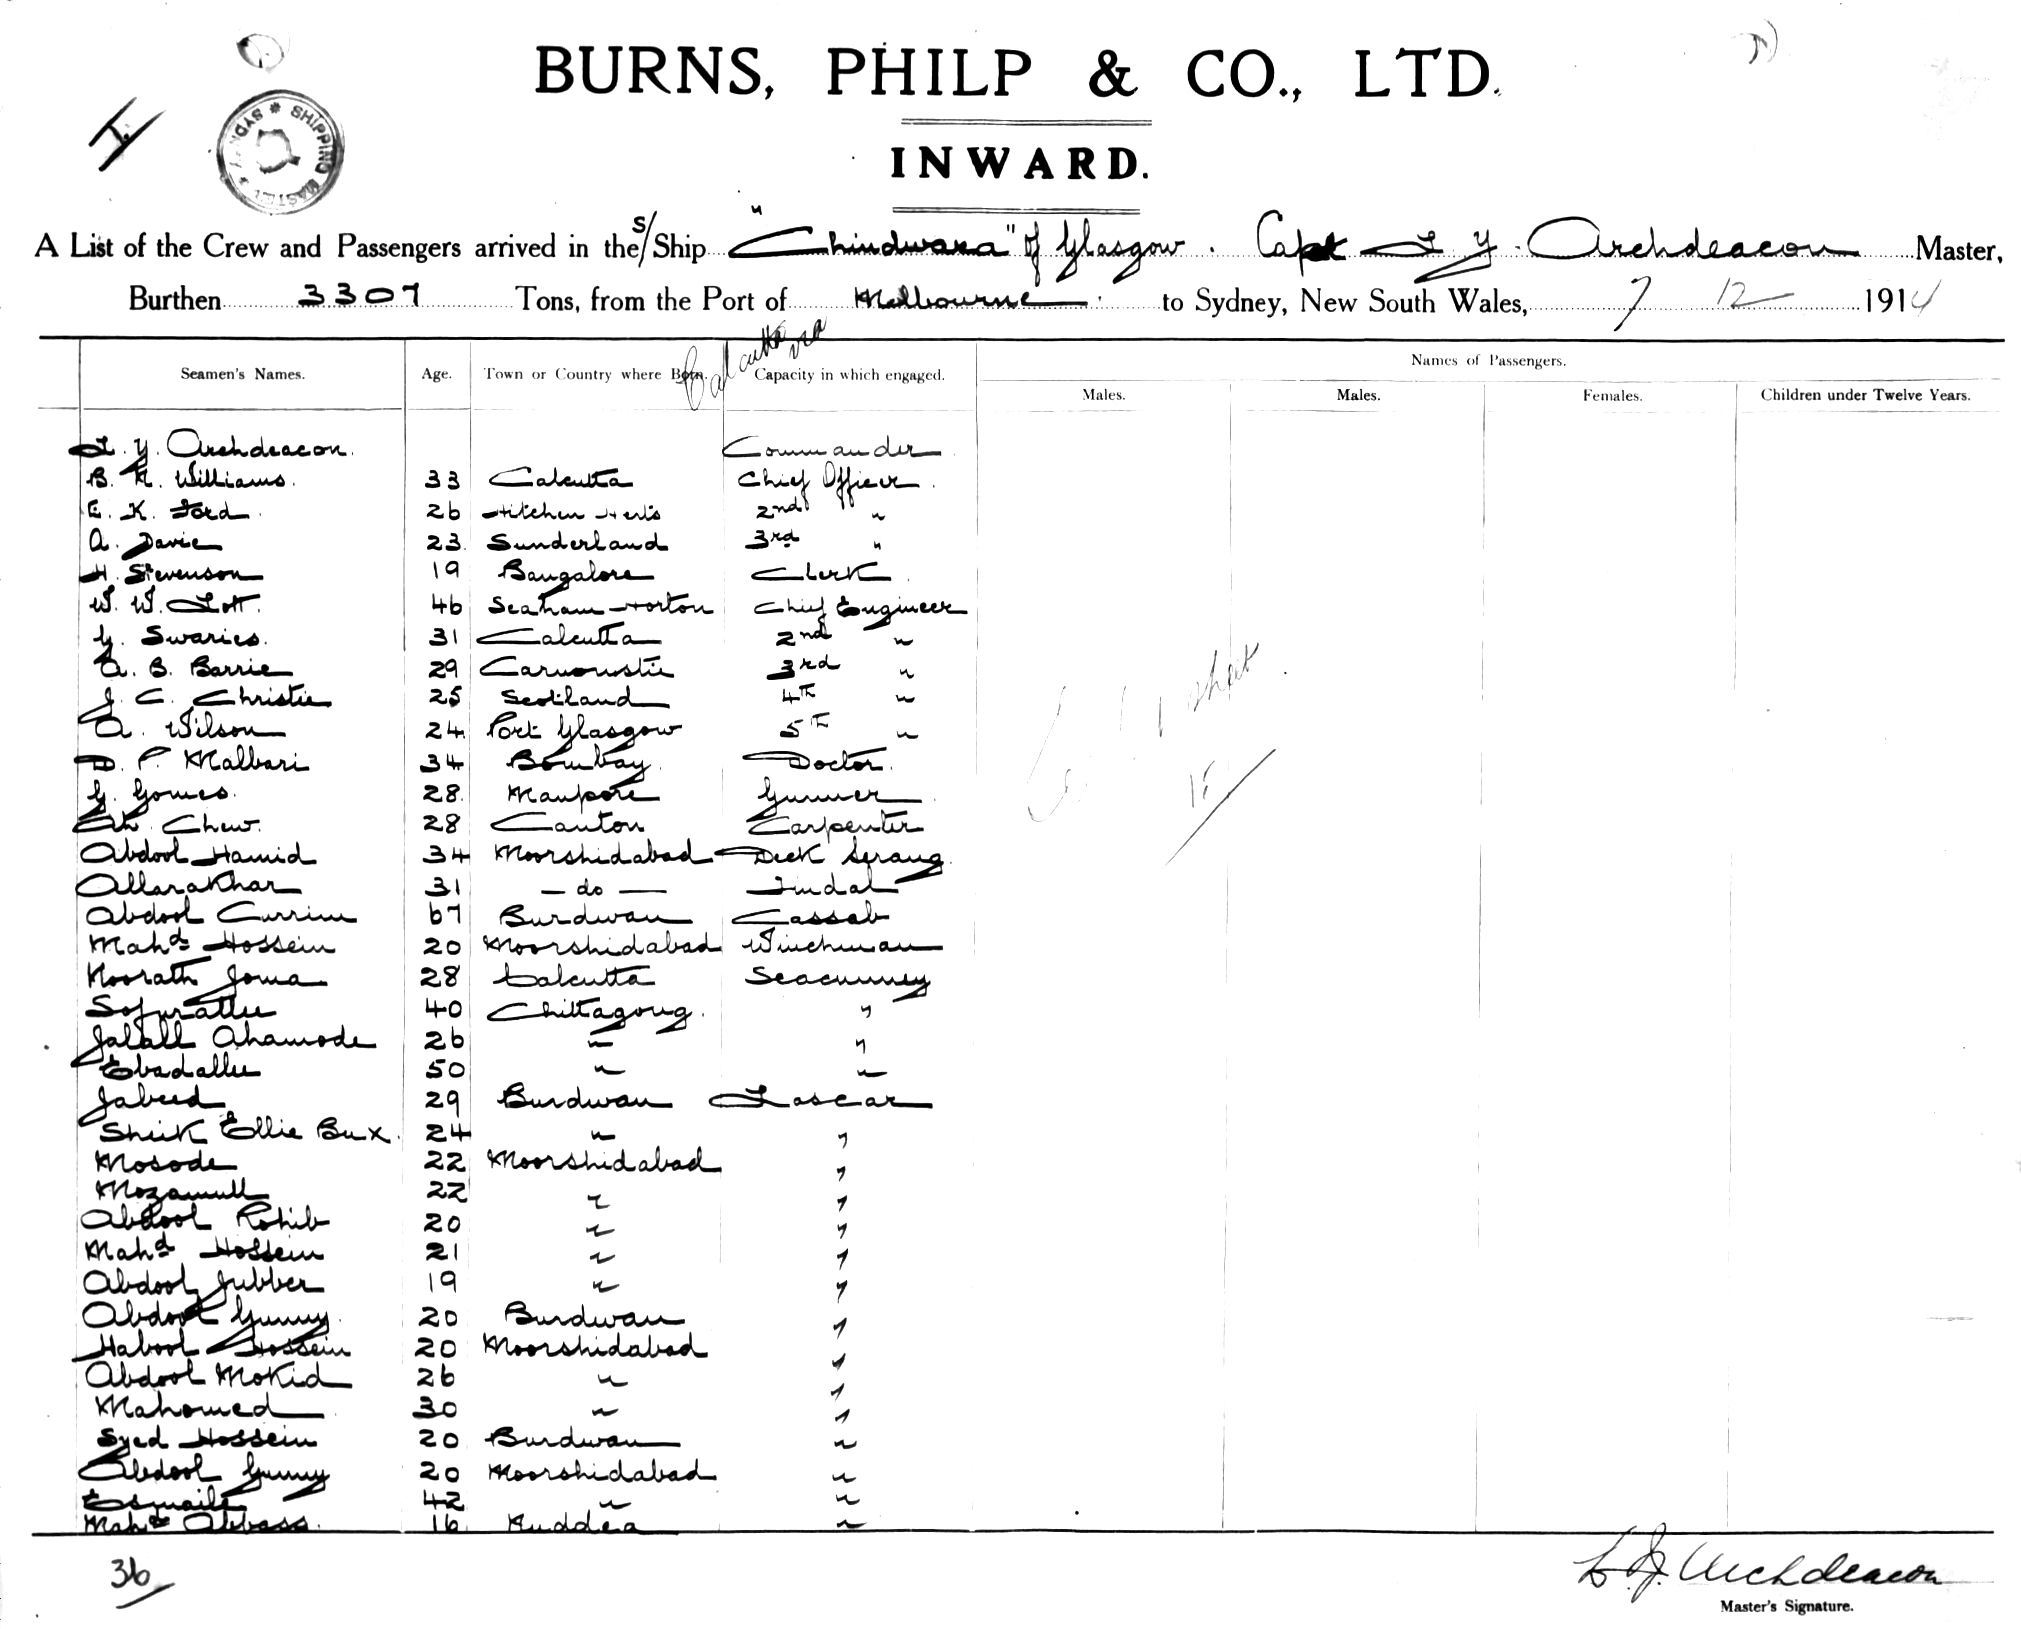 BURNS, PHILP & CO., LTD.
INWARD.
I.
SHIPPING MASTER SYDNEY
A List of the Crew and Passengers arrived in the S/Ship "Chindwara" of Glasgow. Capt L Y. Archdeacon Master,
Burthen 3307 Tons, from the Port of Melbourne. to Sydney, New South Wales, 7 12 1914
Calcutta via
Seamen's Names. Age. Town or Country where Born. Capacity in which engaged. Names of Passengers.
Males. Males. Females. Children under Twelve Years.
L. Y. Archdeacon. Commander
B. R. Williams. 33 Calcutta Chief Officer.
E. K. Ford. 26 Hitchen Herts 2nd "
A. Davie 23. Sunderland 3rd "
H. Stevenson 19 Bangalore Clerk
W. W. Lott. 46 Seaham Horton Chief Engineer
G. Swaries. 31 Calcutta 2nd "
A. B. Barrie 29 Carnoustie 3rd "
J. C. Christie 25 Scotland 4th "
A. Wilson 24 Port Glasgow 5th "
D. P. Malbari 34 Bombay. Doctor.
G. Gomes. 28. Maupore Gunner
Ah. Chew. 28 Canton Carpenter
Abdool Hamid 34 Moorshidabad Deck Serang
Allarakhar 31 — do — Tindal
Abdool Currim 67 Burdwan Cassab
Mahd Hossein 20 Moorshidabad Winchman
Noorath Joma 28 Calcutta Seacunney
Sofurallie 40 Chittagong. "
Jalall Ahamode 26 " "
Ebadallie 50 " "
Jabeed 29 Burdwan Lascar
Sheik Ellie Bux. 24 " "
Mosode 22 Moorshidabad "
Mozamull 22 " "
Abdool Rohib 20 " "
Mahd Hossein 21 " "
Abdool Jubber 19 " "
Abdool Gunny. 20 Burdwan "
Habool Hossein 20 Moorshidabad "
Abdool Mokid 26 " "
Mahomed 30 " "
Syed Hossein 20 Burdwan "
Abdool Gunny 20 Moorshidabad "
Esmaile 42 " "
Mahd Abbass. 16 Nuddea "
sheet
36
L. Y. Archdeacon
Master's Signature.